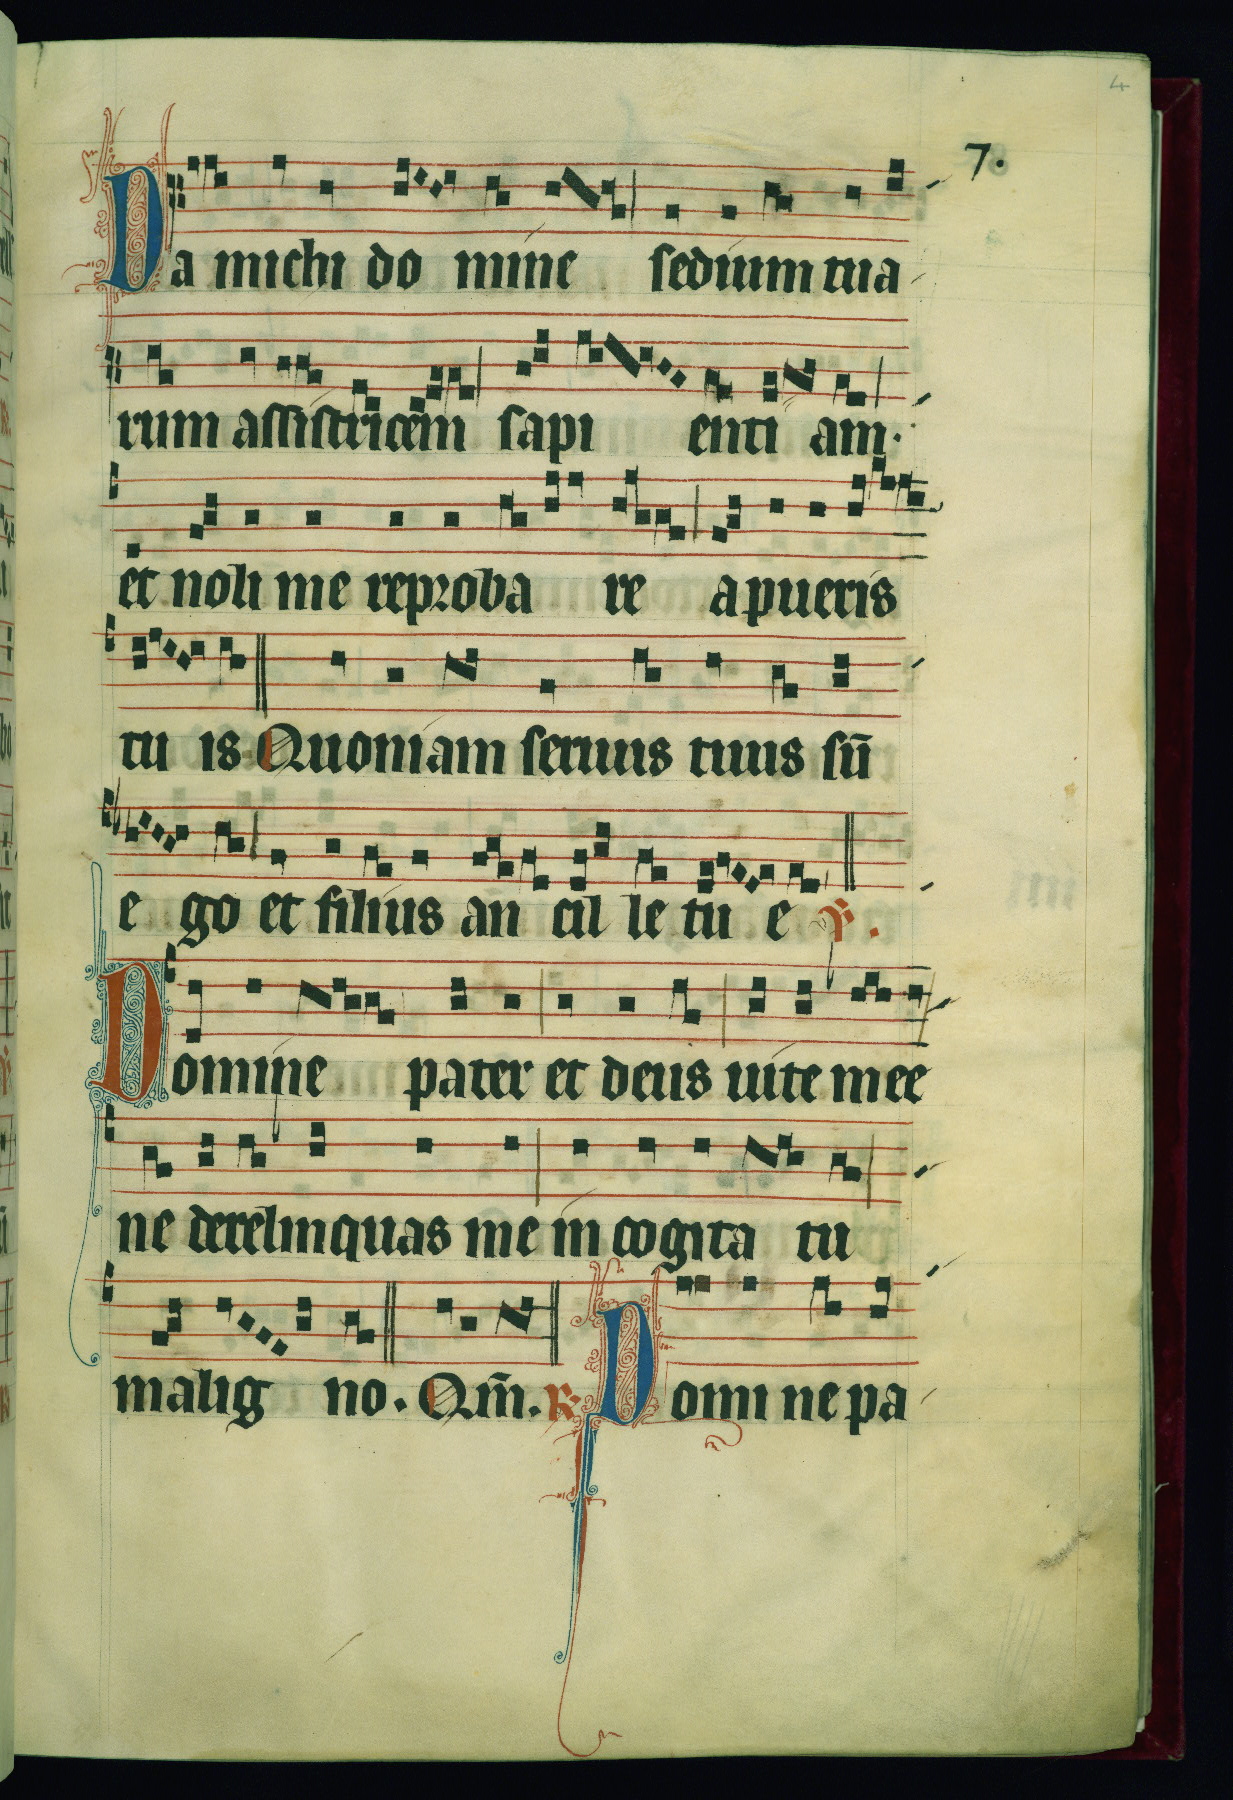 4
7.
Da michi do mine sedium tua
rum assistricem sapi enti am.
et noli me reproba re a pueris
tu is Quoniam seruus tuus sū
e go et filius an cil le tu e ℣.
Domine pater et deus uite mee
ne derelinquas me in cogita tu
malig no. Qm̄. ℟ Domi ne pa